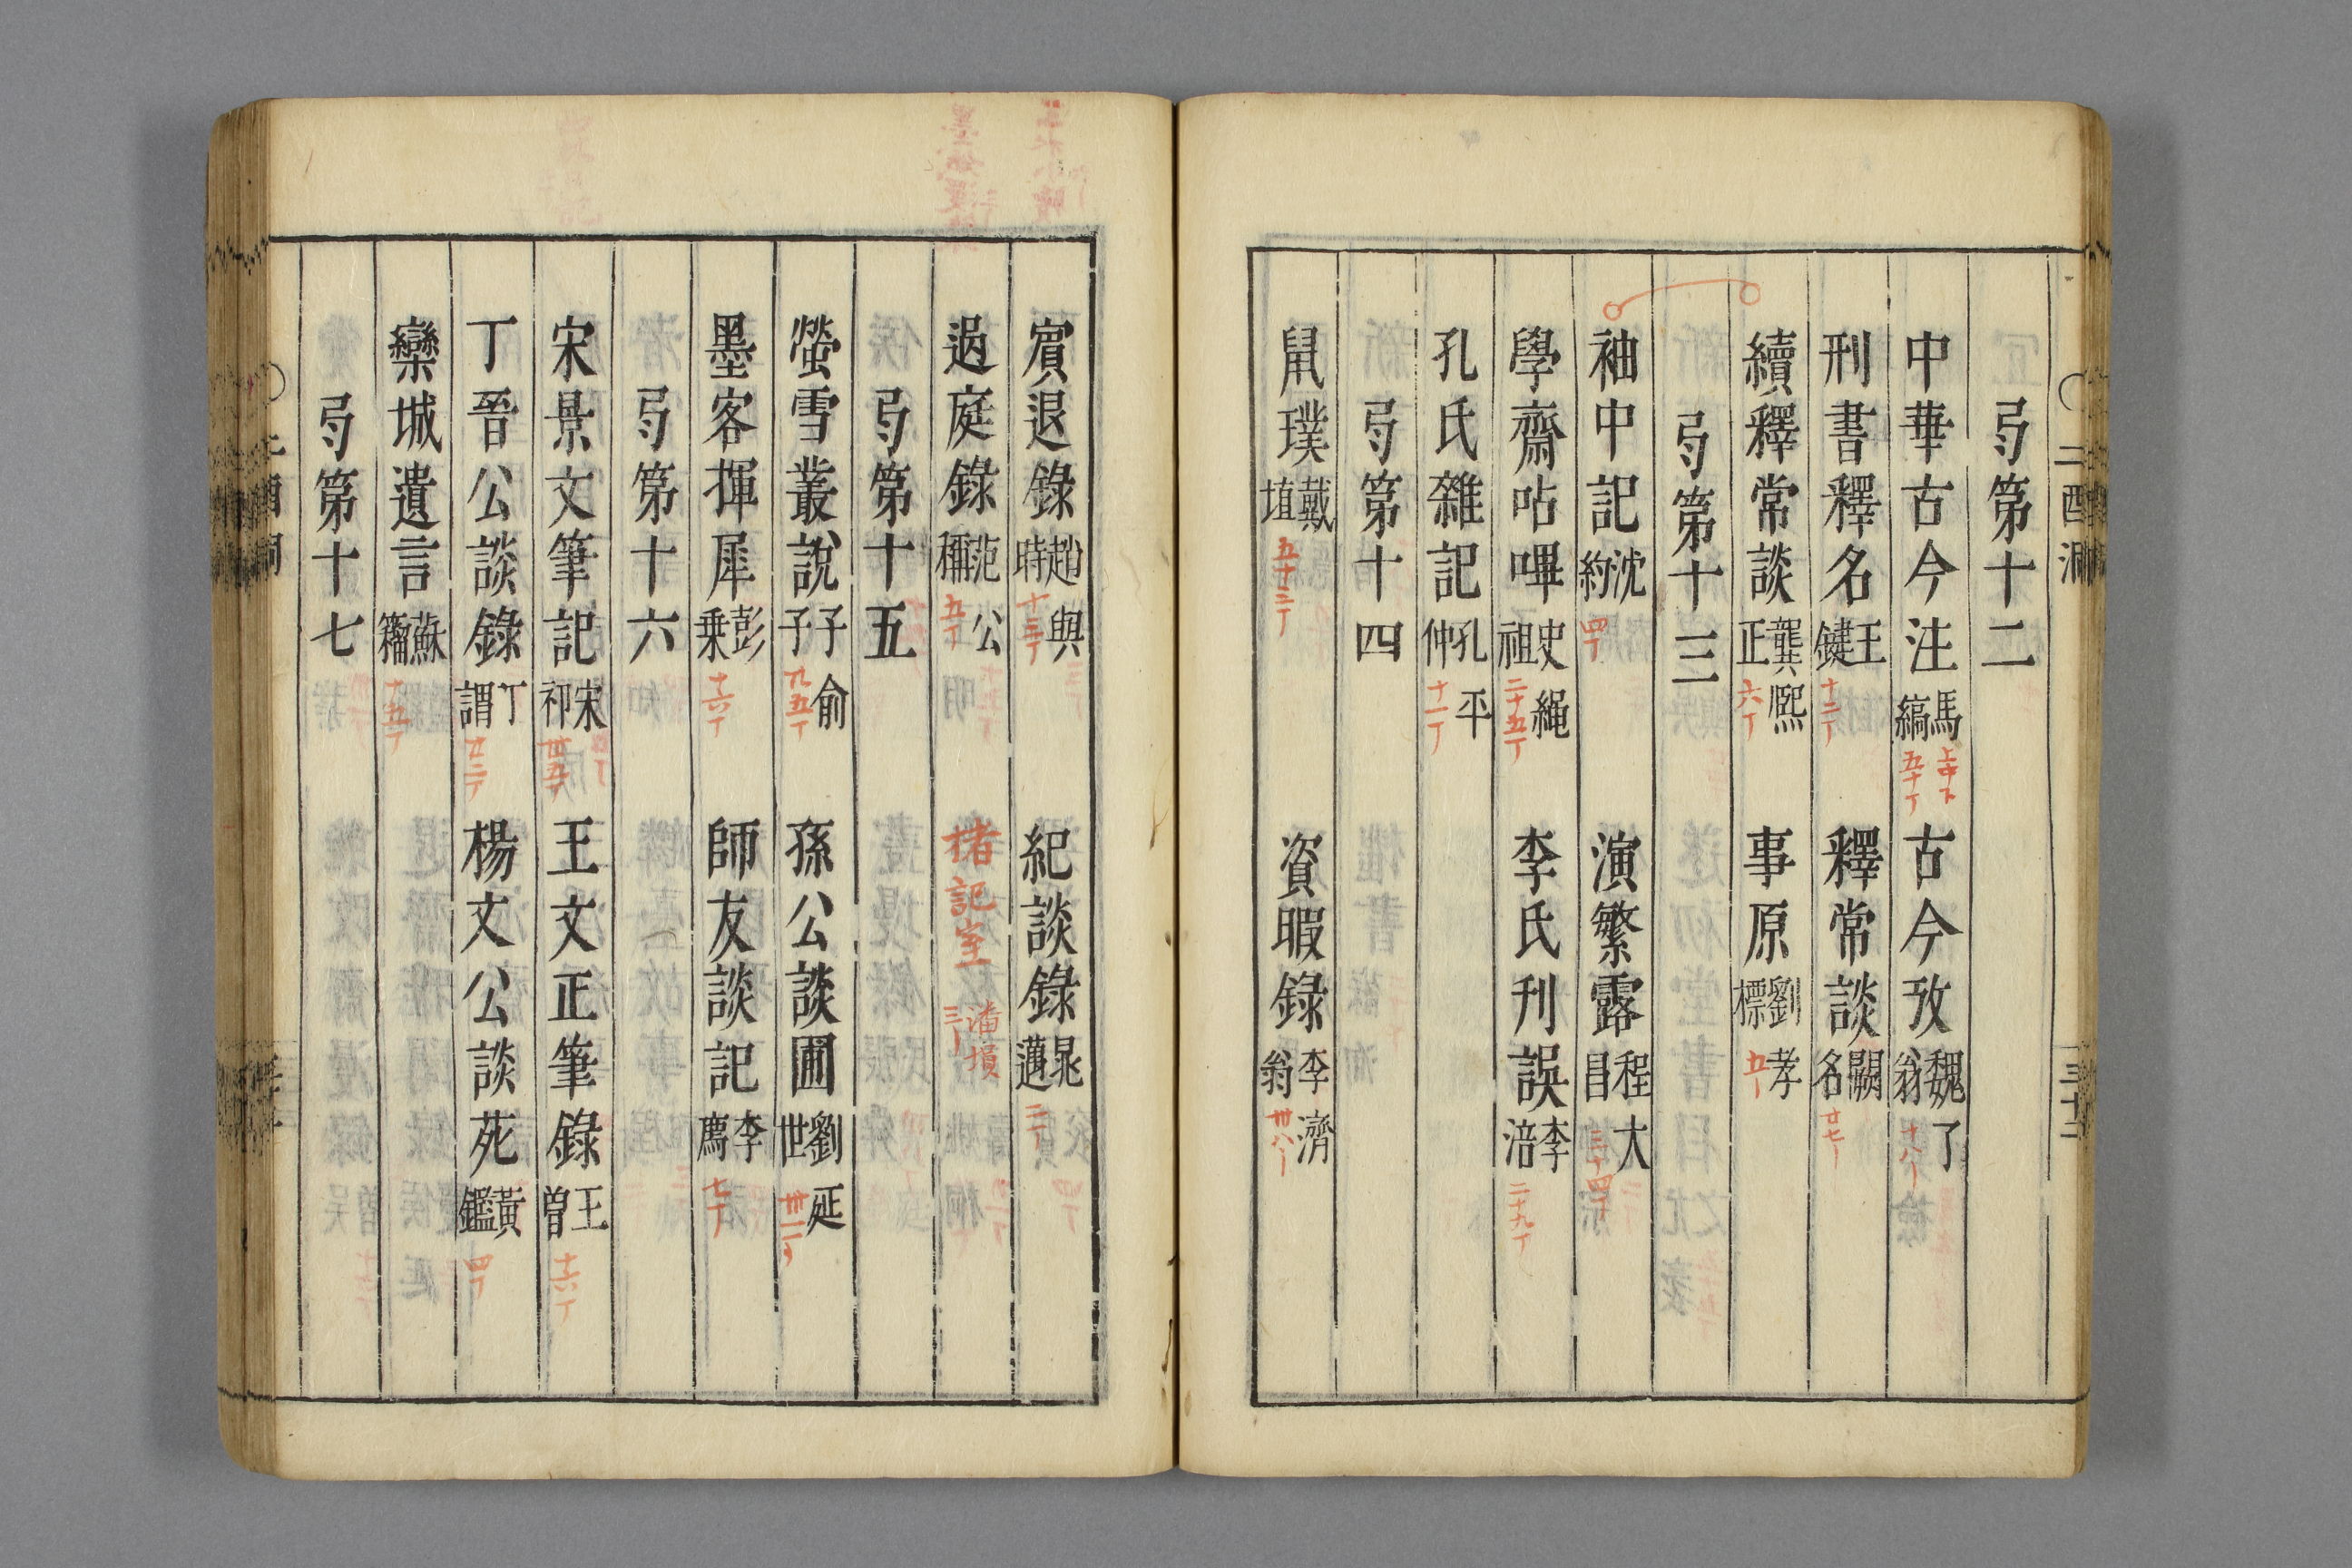 弓第十二
中華古今注 馬縞 上中下 五十丁 古今攷 魏了翁 十八丁
刑書釋名 王鍵 十二丁 釋常談 闕名 廿七丁
續釋常談 龔熙正 六丁 事原 劉孝標 五丁
弓第十三
袖中記 沈約 四丁 演繁露 程大昌
學齋呫嗶 史繩祖 二十五丁 李氏刊誤 李涪 二十九丁
孔氏雜記 孔平仲 十一丁
弓第十四
鼠璞 戴埴 五十三丁 資暇録 李濟翁 卅八丁
二酉洞
三十二
賓退錄 趙與時 十三丁 紀談錄 晁邁 二丁
過庭錄 范公稱 五丁 楮記室 潘塤 三丁
弓第十五
螢雪叢說 子俞子 孫公談圃 劉延世
墨客揮犀 彭乗 十六丁 師友談記 李廌 七丁
弓第十六
宋景文筆記 宋祁 卅五丁 王文正筆錄 王曾 十六丁
丁晉公談錄 丁謂 廿二丁 楊文公談苑 黃鑑 四丁
欒城遺言 蘇籀 十五丁
弓第十七